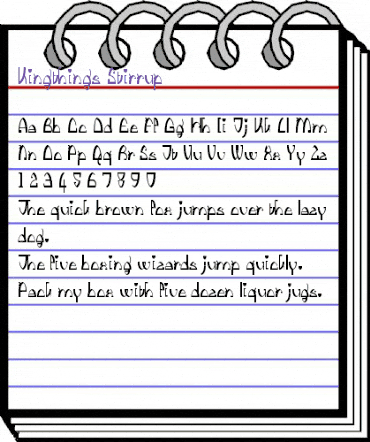 Kingthings Stirrup
Aa Bb Cc Dd Ee Ff Gg Hh Ii Jj Kk Ll Mm
Nn Oo Pp Qq Rr Ss Tt Uu Vv Ww Xx Yy Zz
1 2 3 4 5 6 7 8 9 0
The quick brown fox jumps over the lazy
dog.
The five boxing wizards jump quickly.
Pack my box with five dozen liquor jugs.